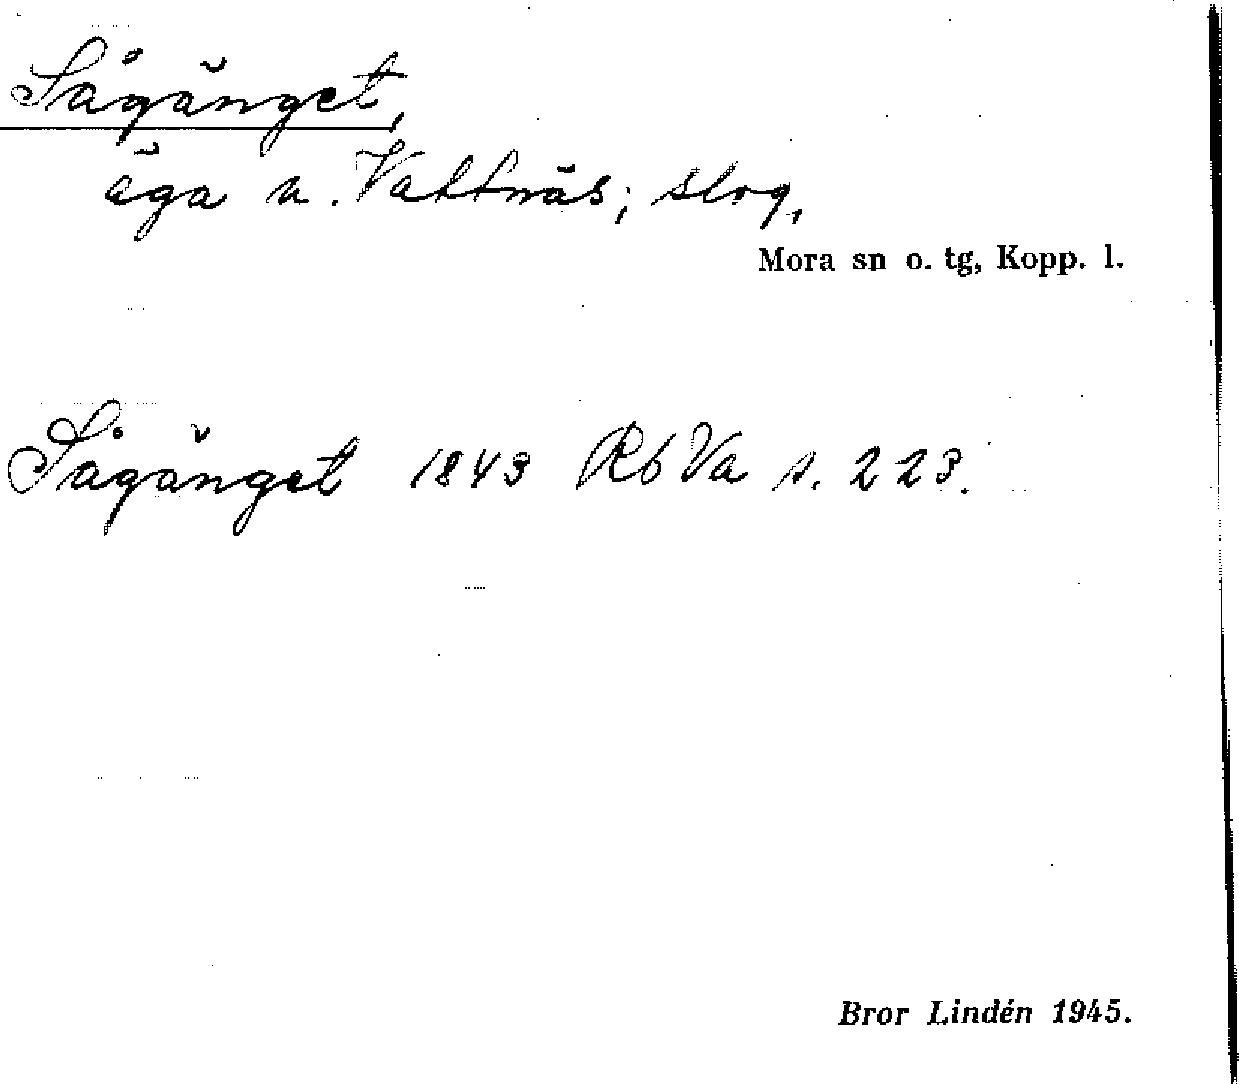 Sågänget,
äga u. Vattnäs; slog,
Mora sn o. tg, Kopp. l.
Sågänget 1843 RbVa s. 223.
Bror Lindén 1945.